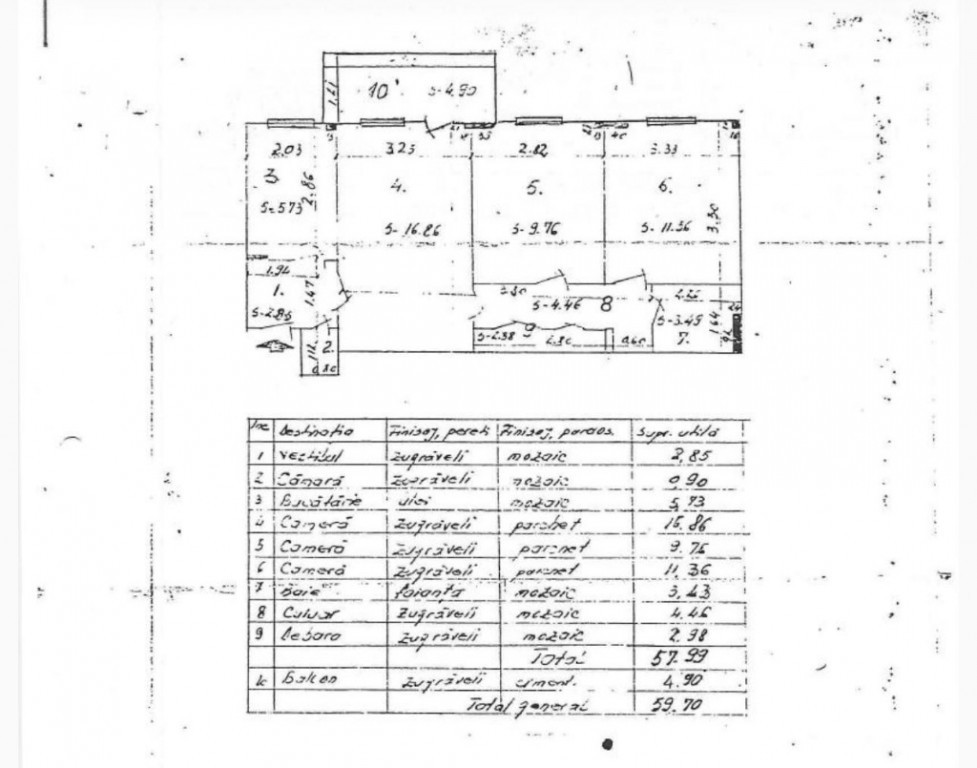 10 S-4.90
1.21
2.03 3.23 2.82 3.33
3. 2.86 4. 5. 6.
S-5.73 S-16.86 S-9.76 S-11.36 3.50
1.94
1. 1.47
S-2.85
S-4.46 8
S-3.43 1.64
9
S-2.98 2.80 0.60 7.
2.
0.80
Destinația Finisaj, pereti Finisaj, pardos. Supr. utilă
1 Vestibul zugrăveli mozaic 2,85
2 Cămară zugrăveli mozaic 0.90
3 Bucătărie ulei mozaic 5,73
4 Cameră zugrăveli parchet 16.86
5 Cameră zugrăveli parchet 9.76
6 Cameră zugrăveli parchet 11.36
7 Baie faianță mozaic 3.43
8 Culoar zugrăveli mozaic 4.46
9 Debara zugrăveli mozaic 2.98
Total 57.99
Balcon zugrăveli ciment. 4.90
Total general 59.70